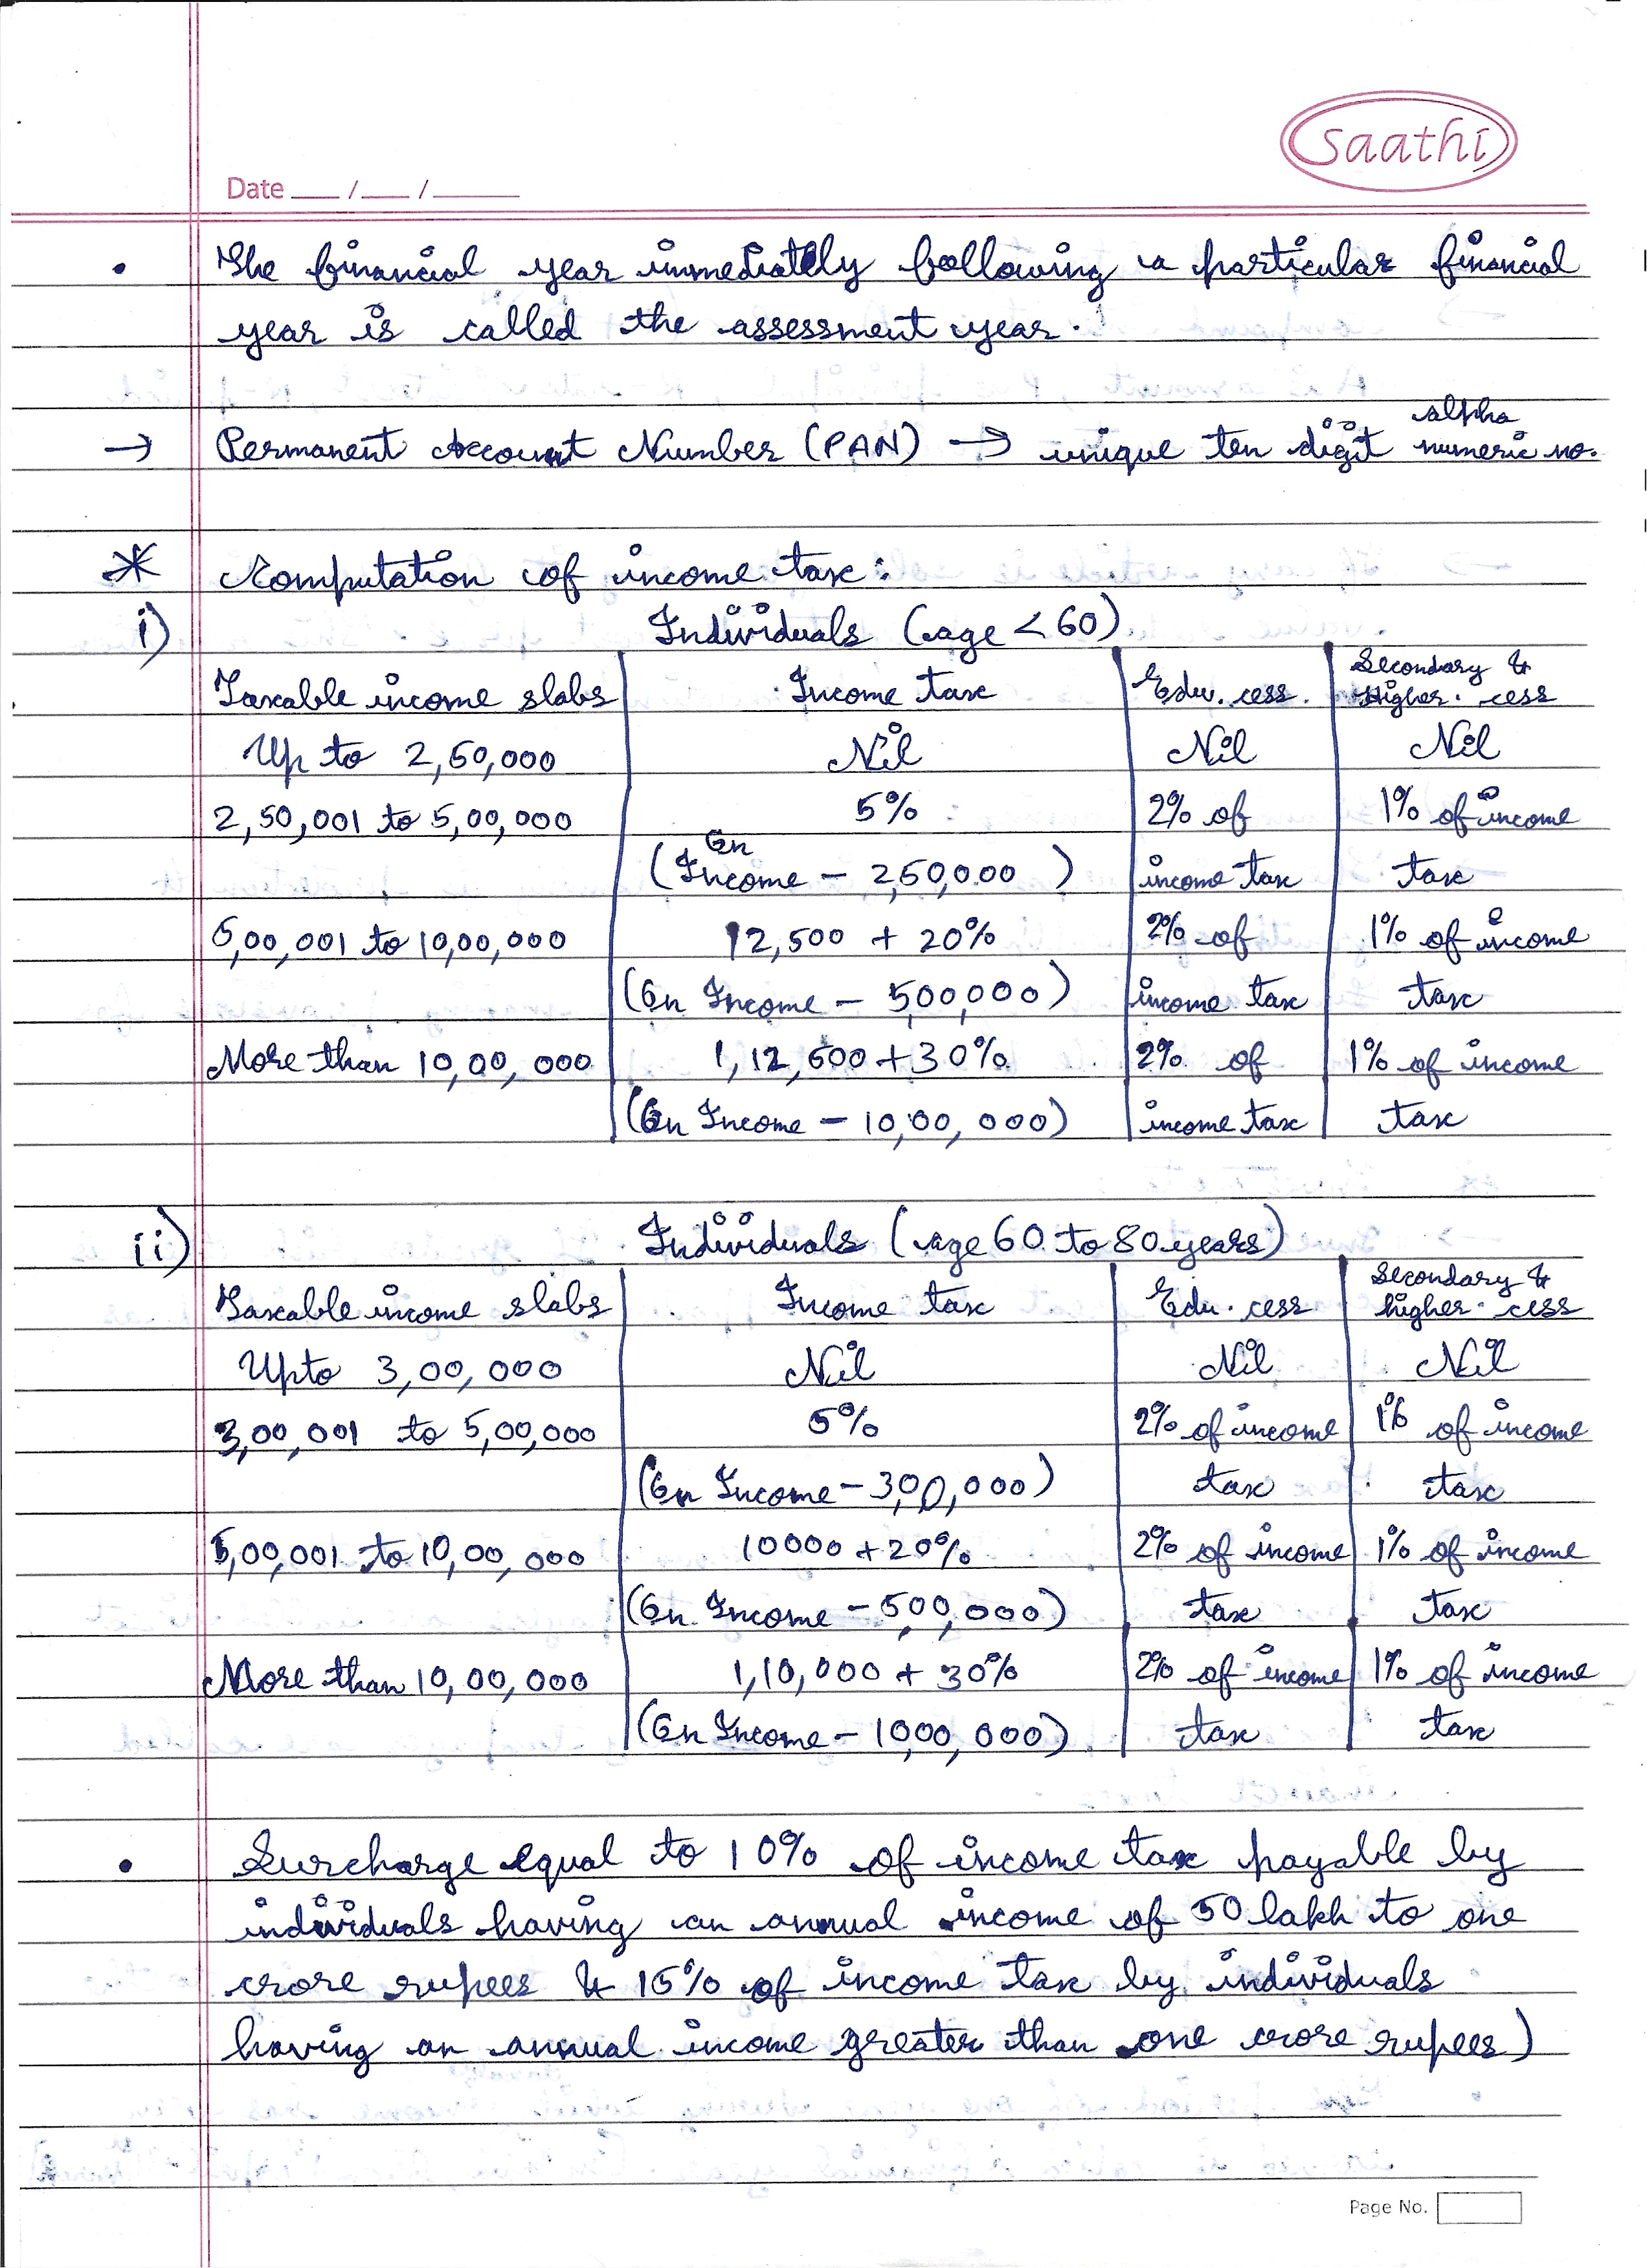 saathi
Date ___ / ___ / _____
• The financial year immediately following a particular financial
year is called the assessment year.
→ Permanent Account Number (PAN) → unique ten digit alpha numeric no.
* Computation of income tax:
i) Individuals (age < 60)
Taxable income slabs | Income tax | Edu. cess. | Secondary & Higher. cess
Up to 2,50,000 | Nil | Nil | Nil
2,50,001 to 5,00,000 | 5% | 2% of | 1% of income
(On Income - 2,50,000) | income tax | tax
5,00,001 to 10,00,000 | 12,500 + 20% | 2% of | 1% of income
(On Income - 5,00,000) | income tax | tax
More than 10,00,000 | 1,12,500 + 30% | 2% of | 1% of income
(On Income - 10,00,000) | income tax | tax
ii) Individuals (age 60 to 80 years)
Taxable income slabs | Income tax | Edu. cess | Secondary & higher. cess
Upto 3,00,000 | Nil | Nil | Nil
3,00,001 to 5,00,000 | 5% | 2% of income | 1% of income
(On Income - 3,00,000) | tax | tax
5,00,001 to 10,00,000 | 10000 + 20% | 2% of income | 1% of income
(On Income - 5,00,000) | tax | tax
More than 10,00,000 | 1,10,000 + 30% | 2% of income | 1% of income
(On Income - 10,00,000) | tax | tax
• Surcharge equal to 10% of income tax payable by
individuals having an annual income of 50 lakh to one
crore rupees & 15% of income tax by individuals
having an annual income greater than one crore rupees)
Page No.